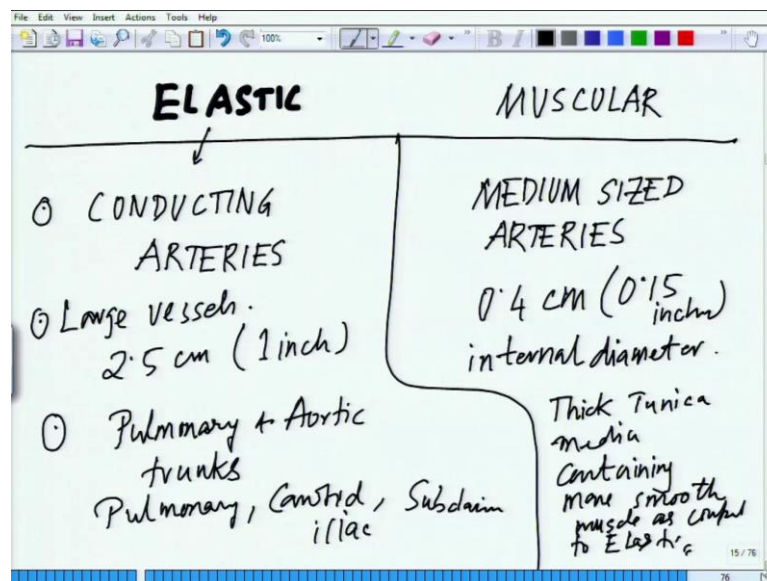 File Edit View Insert Actions Tools Help
100%
B I
ELASTIC
CONDUCTING
ARTERIES
Large vessels.
2.5 cm (1 inch)
Pulmonary + Aortic
trunks
Pulmonary, Carotid, Subclavian
iliac
MUSCULAR
MEDIUM SIZED
ARTERIES
0.4 cm (0.15
inches)
internal diameter.
Thick Tunica
media
Containing
more smooth
muscle as
to Elastic
15 / 76
76